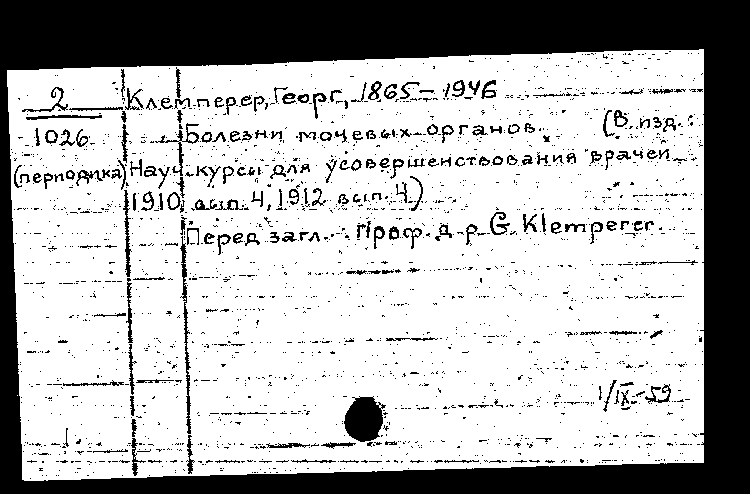 2
Клемперер, Георг, 1865-1946
1026
Болезни мочевых органов. (В изд.:
(периодика) Науч. курсы для усовершенствования врачей
1910 вып. 4, 1912 вып. 4)
Перед загл.: Проф. д-р G. Klemperer.
1/IX-59